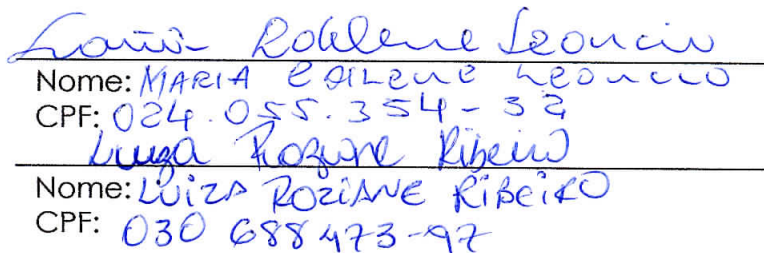 Maria Edilene Leoncio
Nome: MARIA EDILENE LEONCIO
CPF: 024.055.354-32
Luiza Roziane Ribeiro
Nome: LUIZA ROZIANE RIBEIRO
CPF: 030 688 473-97